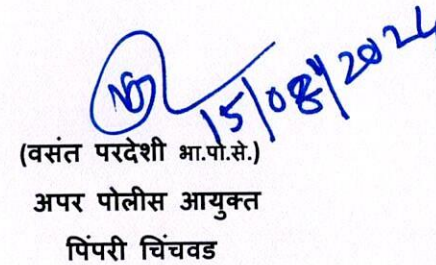 15/08/202
(वसंत परदेशी भा.पो.से.)
अपर पोलीस आयुक्त
पिंपरी चिंचवड